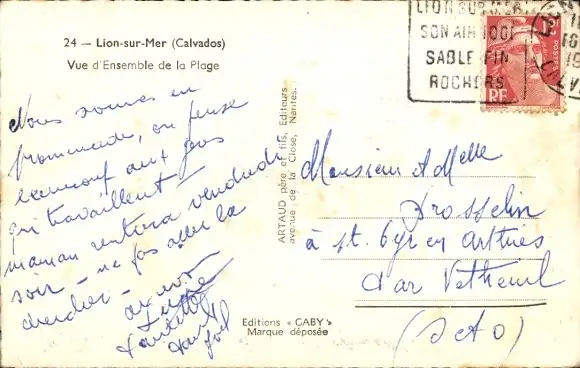 24 — Lion-sur-Mer (Calvados)
Vue d'Ensemble de la Plage
Nous sommes en
promenade, on pense
beaucoup aux gens
qui travaillent —
maman rentrera vendredi
soir — ne pas aller la
chercher —
ARTAUD père et fils, Editeurs
avenue de la Close, Nantes.
Editions « GABY »
Marque déposée
LION SUR MER
SON AIR IODÉ
SABLE FIN
ROCHERS
POSTES
RF
Monsieur et Melle
Drosselin
à St. Cyr en Arthies
par Vetheuil
(S et O)